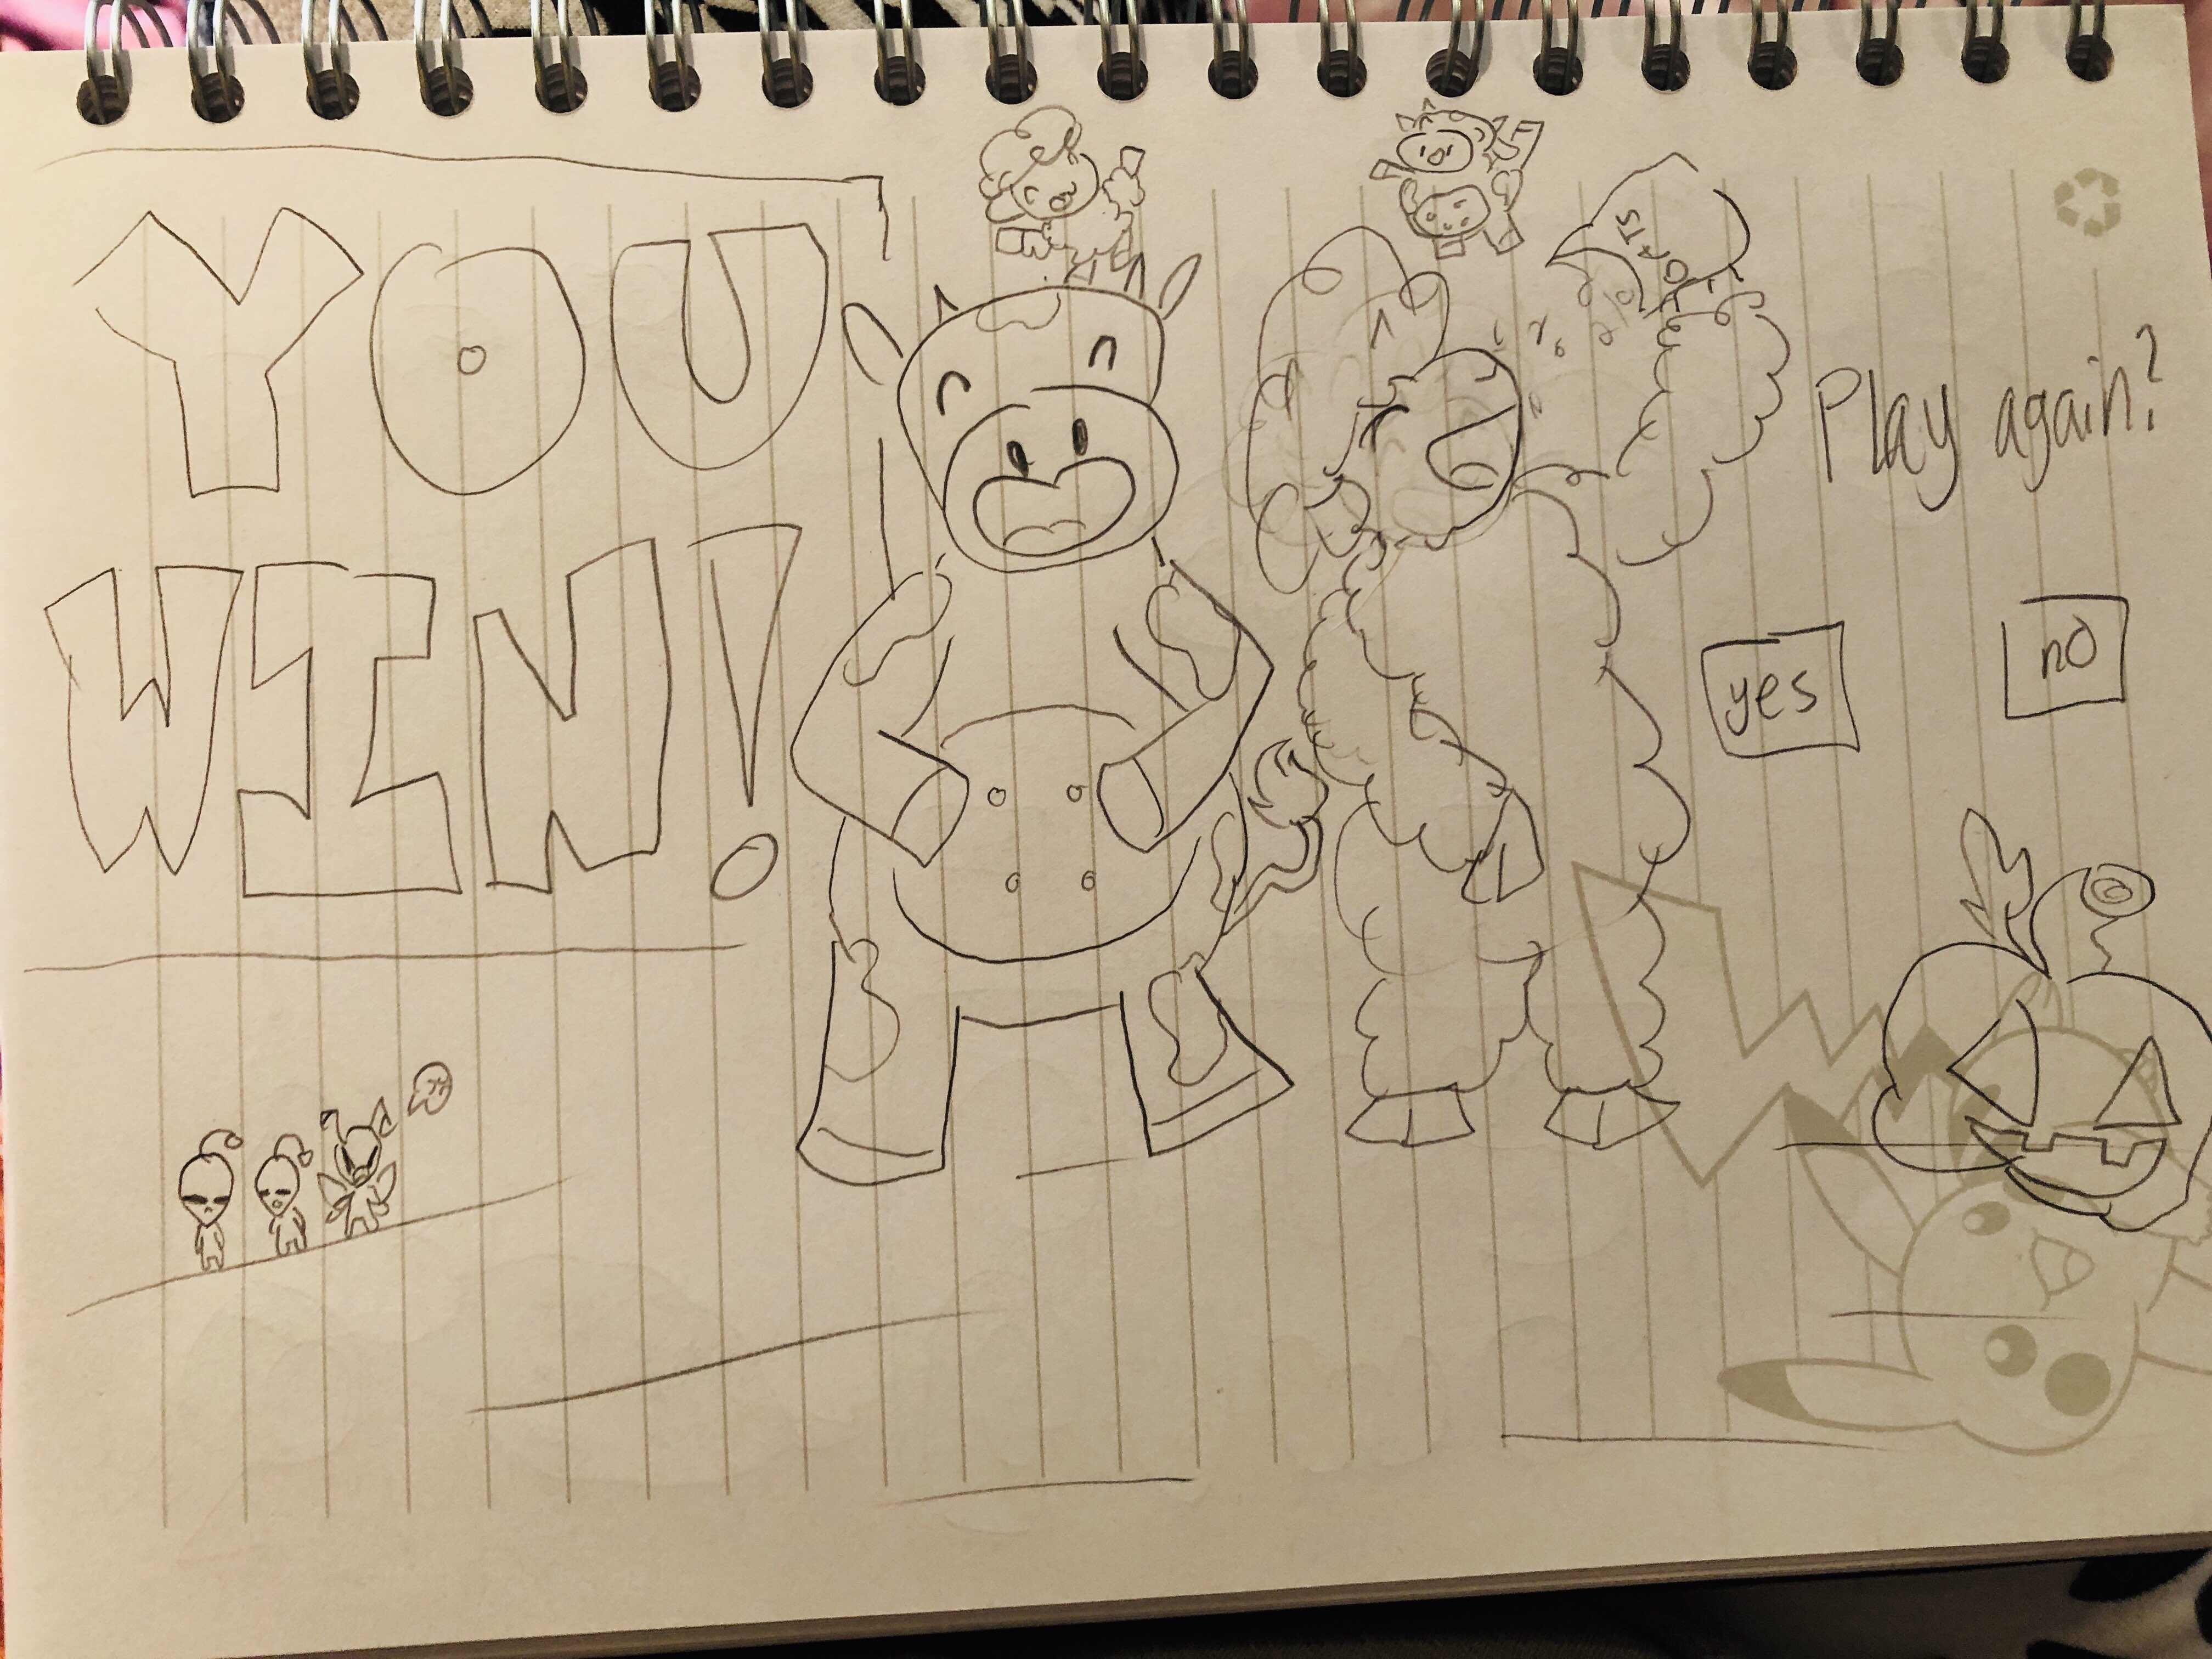 YOU
WIN!
OATS
Play again?
yes
no